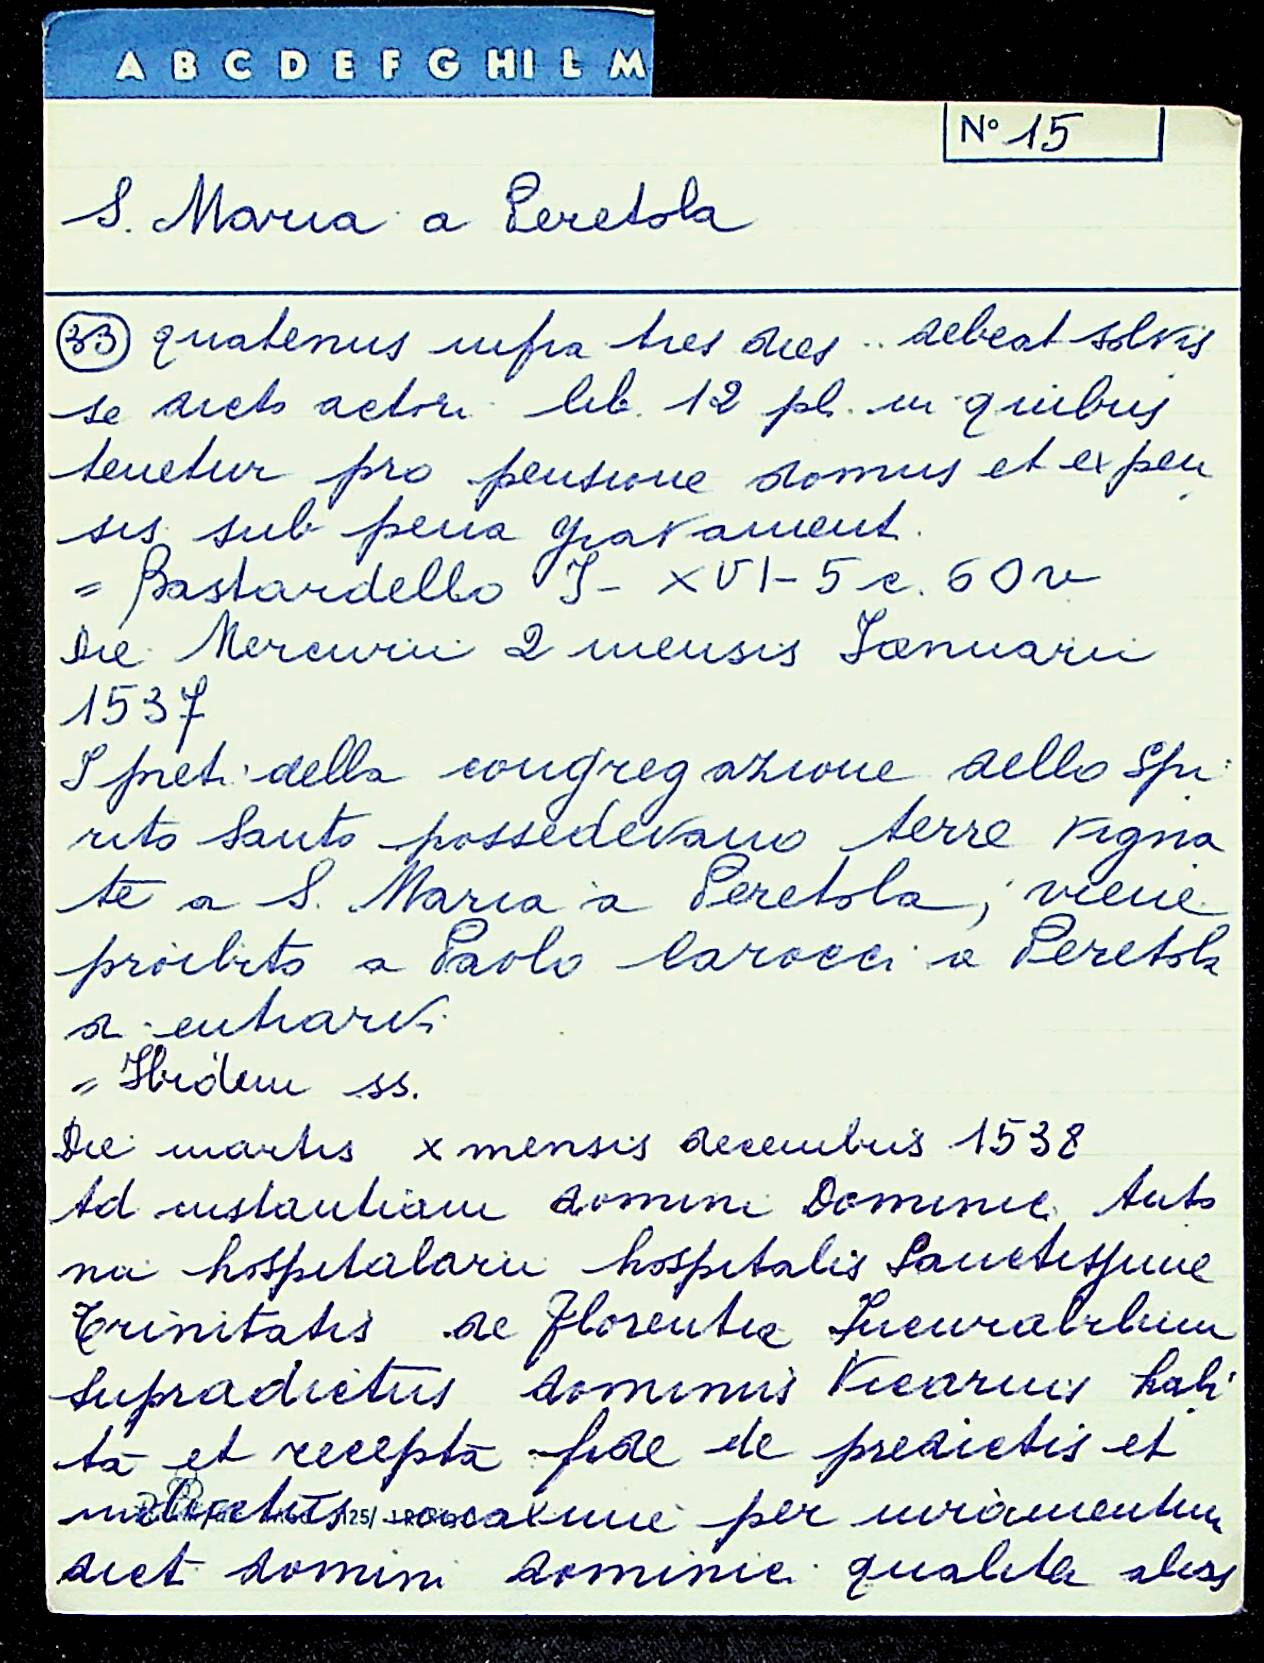 A B C D E F G HI L M
N° 15
S. Maria a Peretola
33 quatenus infra tres dies .. debeat solvis
se dicto actori lib. 12 pl. in quibus
tenetur pro pensione domus et expen
sis sub pena gravament.
= Bastardello I - XVI - 5 c. 60 v
Die Mercurii 2 mensis Ianuarii
1537
I preti della congregazione dello Spi
rito Santo possedevano terre vigna
te a S. Maria a Peretola; viene
proibito a Paolo Carocci a Peretola
a entrarvi
= Ibidem ss.
Die martis x mensis decembris 1538
Ad instantiam domini Dominici Anto
nii hospitalarii hospitalis Sanctissime
Trinitatis de Florentia Incurabilium
supradictus dominus Vicarius habi
ta et recepta fide de predictis et
per iuramentum
dict domini dominici qualite alias